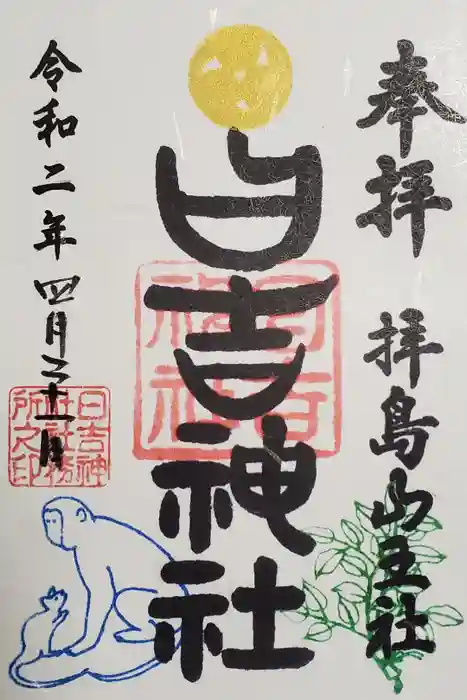 奉拝
拝島山王社
日吉神社
日吉神社
令和二年四月二十一日
日吉神
社社務
所之印